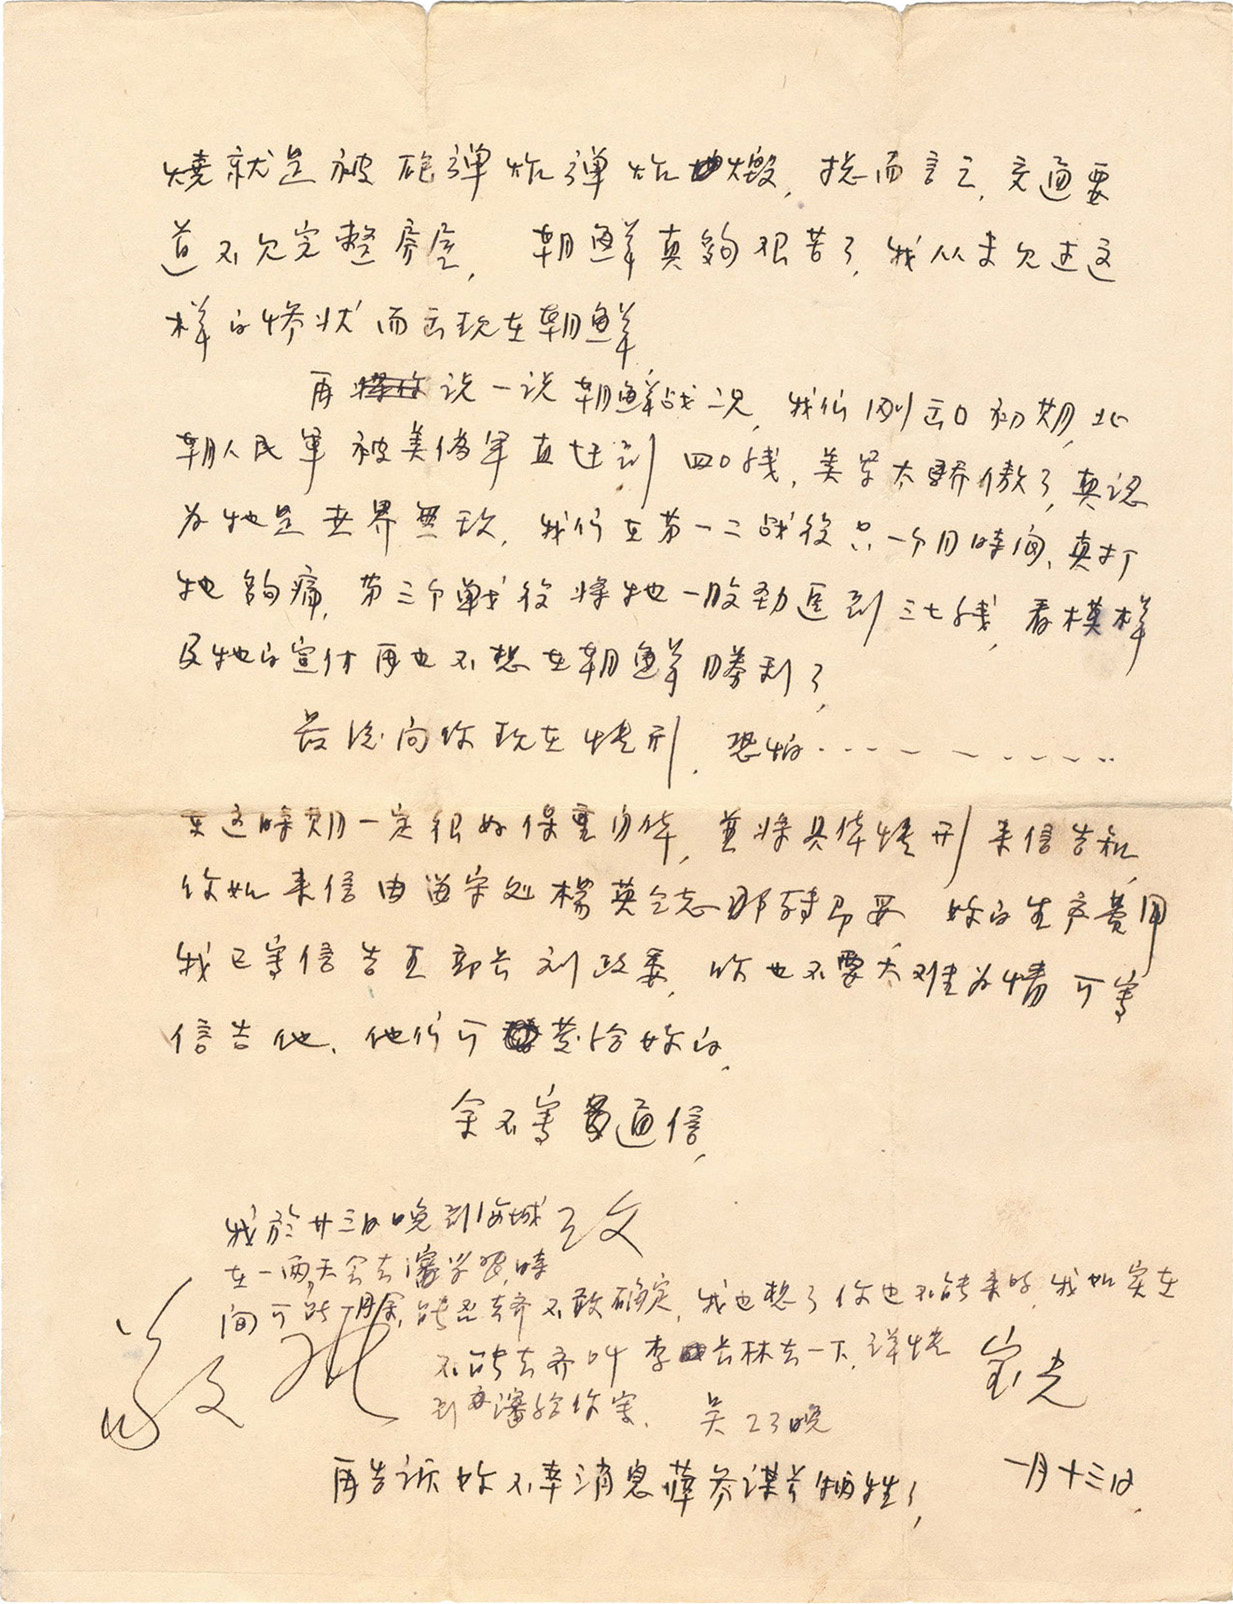 燒就是被砲弹炸弹炸燬，总而言之，交通要
道不见完整房屋，朝鲜真夠艰苦了，我从未见过这
样的惨状而在现在朝鲜
再说一说朝鲜战况，我们刚出口初期，北
朝人民軍被美偽军直赶到四〇线，美军太驕傲了，真認
为牠是世界無敌，我们在第一二战役只一个月時间，真打
牠夠痛，第三个戰役将牠一股劲追到三七线，看模样
及牠的宣付再也不想在朝鲜勝利了，
最后问你现在情形，恐怕………
在这時期一定很好保重身体，並将具体情形来信告知，
你如来信由留守处楊英同志那转即妥 妳的生产费用
我已寫信告王部长刘政委，你也不要太难为情可寫
信告他、他们可发给妳的，
余不寫多通信，
我於廿三日晚到海城
在一两天会去瀋学習，時
间可能月余，能否去齐不敢确定，我也想了你也不能来的，我如实在
不能去齐叫李长林去一下，详情
到瀋给你寫． 吴23晚
敬礼
宝光
再告诉妳不幸消息薛参谋长牺牲了，
一月十三日．